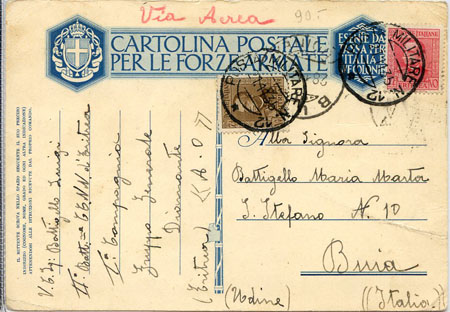 Via Aerea
90 -
CARTOLINA POSTALE
PER LE FORZE ARMATE
ESENTE DA
TASSA PER
ITALIA E
COLONIE
POSTA MILITARE N. 12
MILITARE N. 12
Alla Signora
Battigello Maria Marta
S. Stefano N. 10
Buia
(Udine) (Italia)
IL MITTENTE SCRIVA NELLO SPAZIO SEGUENTE IL SUO PRECISO
INDIRIZZO (COGNOME, NOME, GRADO ED OGNI ALTRA INDICAZIONE)
ATTENENDOSI ALLE ISTRUZIONI RICEVUTE DAL PROPRIO COMANDO.
Battigello Luigi
d'Eritrea
1ª Compagnia
Gruppo Generale
Diamanti
(Eritrea) (A.O.)